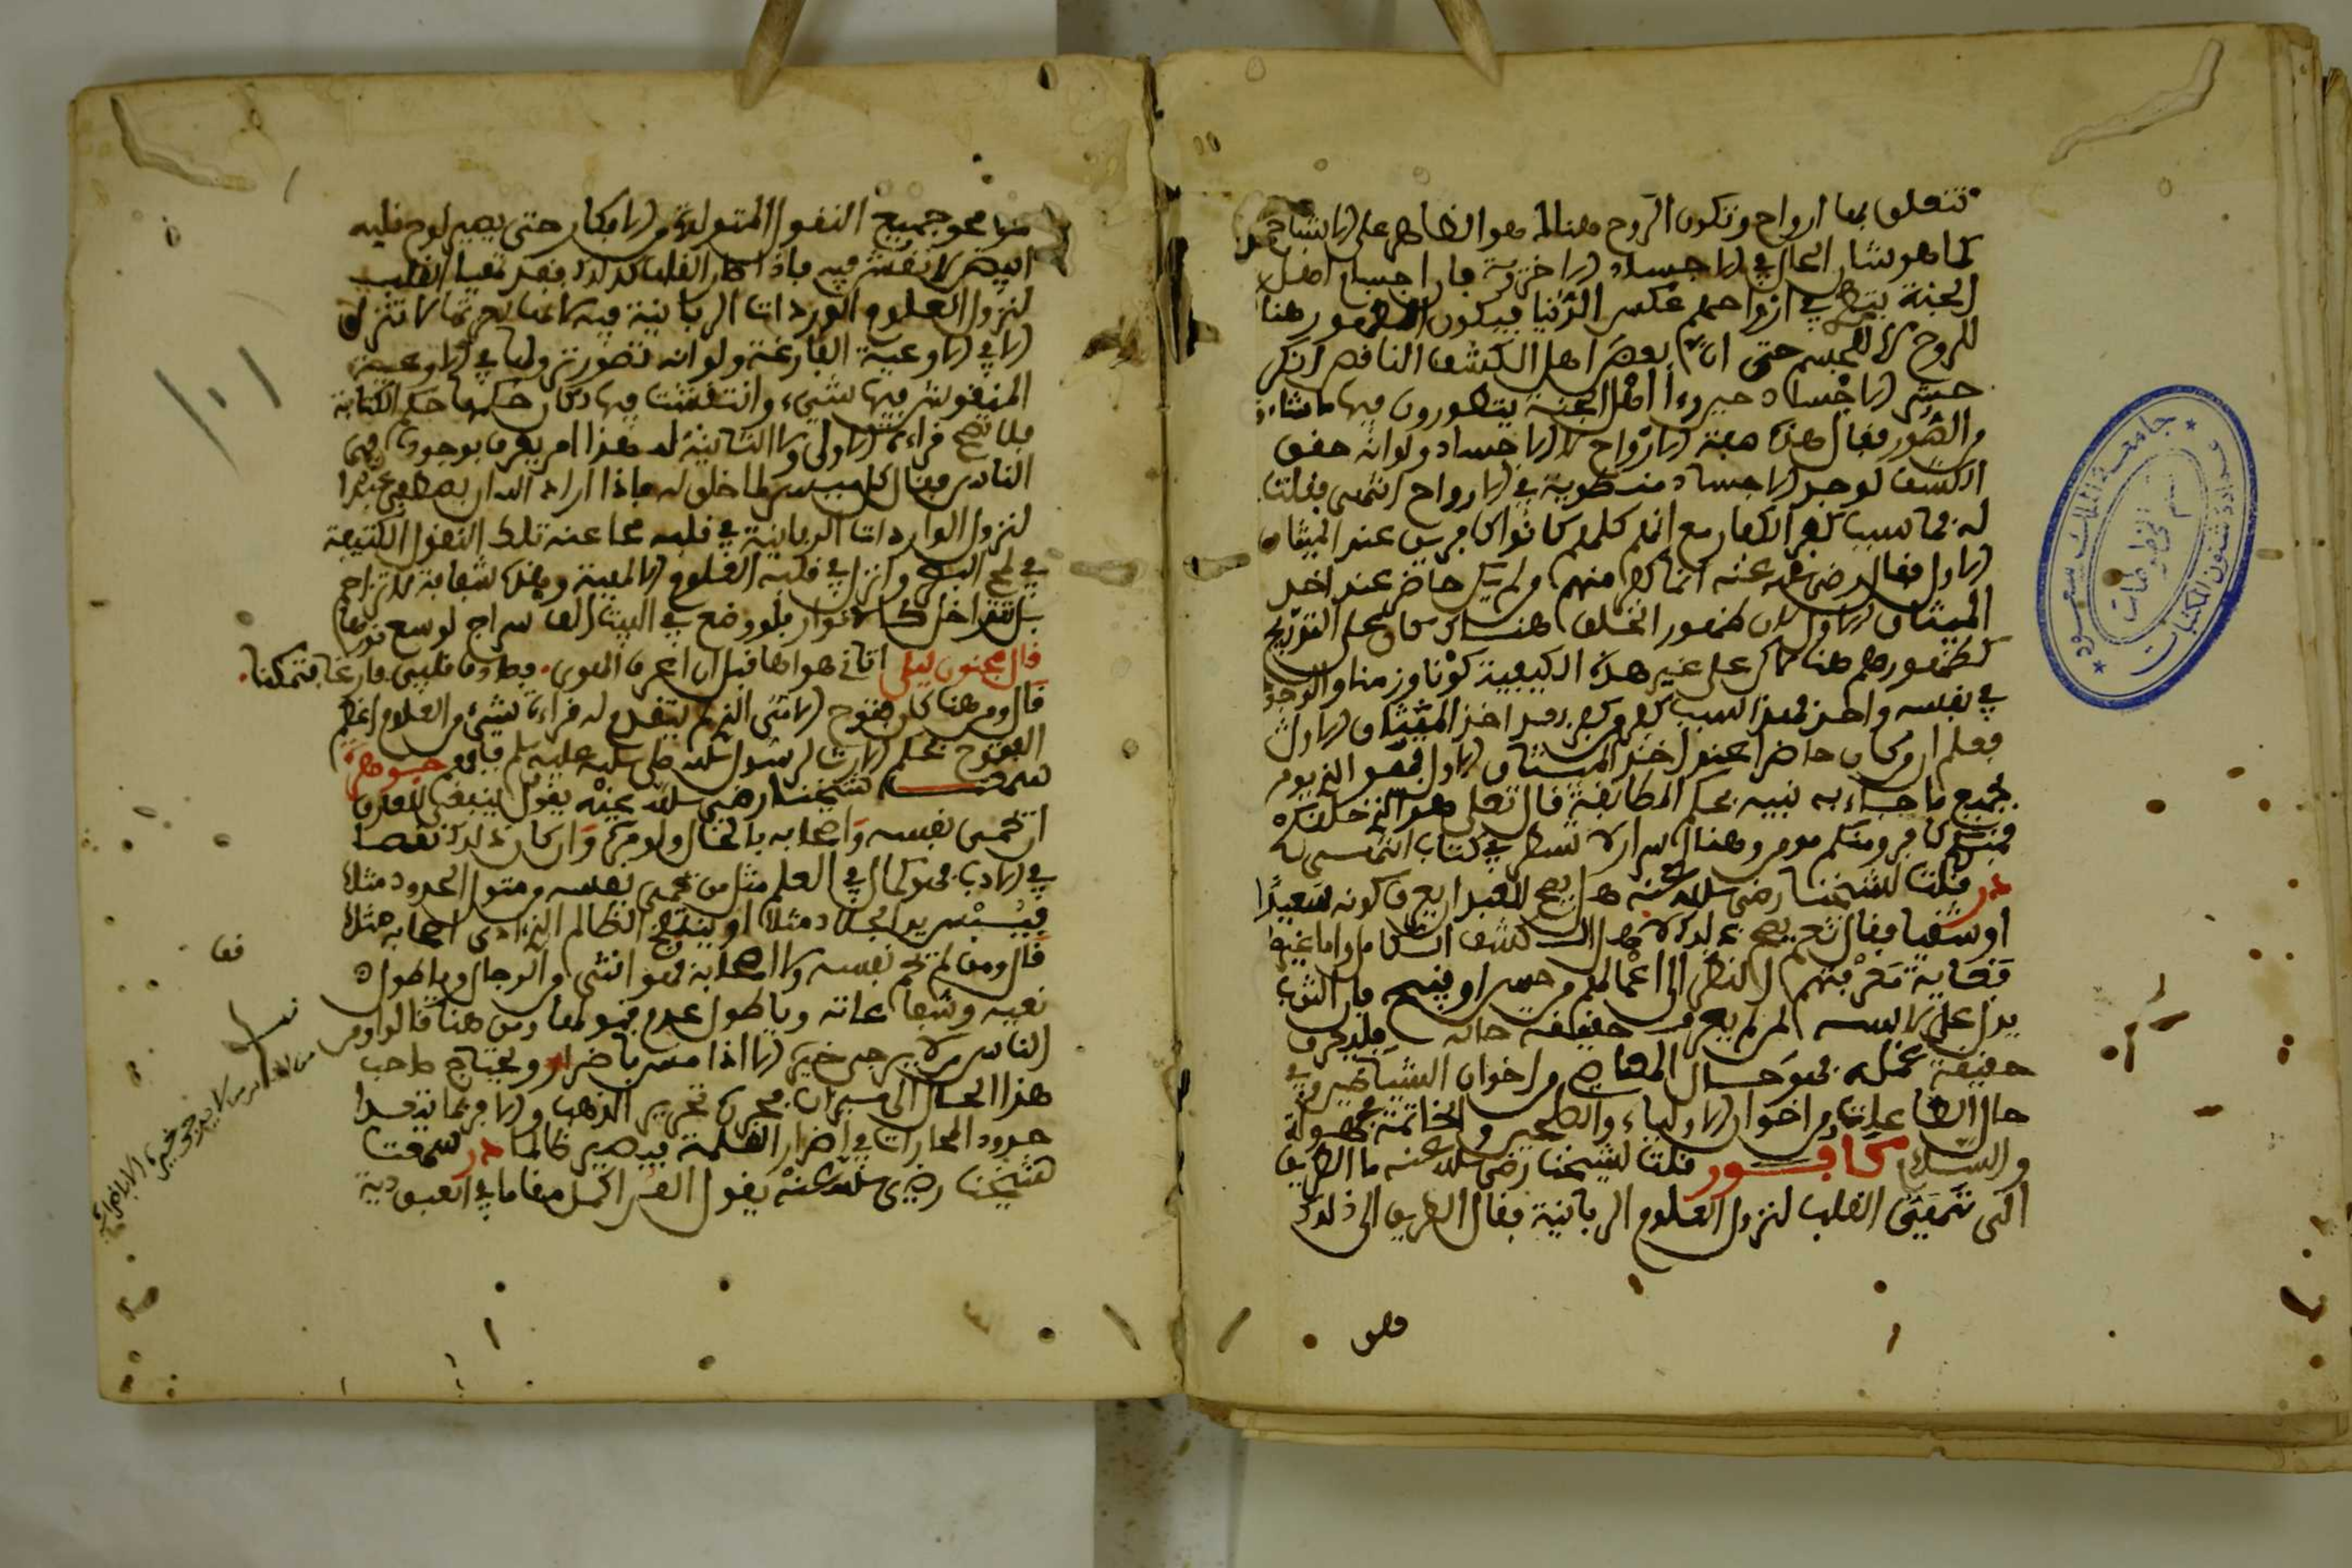 تتعلق بها ارواح وتكون الروح هنالك هو الظاهر على الاشباح
كما هو شان الحال في الاجساد الاخروية فان اجساد اهل
الجنة تنطوي في ارواحهم عكس الدنيا فيكون الظهور هنا
للروح لا للجسم حتى ان بعض اهل الكشف الناقص انكر
حشر الاجساد حين رءا اهل الجنة يتطورون فيها ما شاءوا
من الصور فقال هذه صفة الارواح لا الاجساد ولو انه حقق
الكشف لوجد الاجساد منطوية في الارواح انتهى فقلت
له فما سبب كفر الكفار مع انهم كلهم كانوا حاضرين عند الميثاق
الاول فقال رضي الله عنه انما كفر منهم من لم يكن حاضرا عند اخذ
الميثاق الاول لان ظهور الخلق هنالك كان على التدريج
كظهورهم هنا لاكن على غير هذه الكيفية كونا وزمنا والوجود
في نفسه واحد فهذا سبب كفر من كفر بعد اخذ الميثاق الاول
فعلم ان من كان حاضرا عند اخذ الميثاق الاول فهو الذي يومن
بجميع ما جاء به نبيه بحكم المطابقة قال تعلى هو الذي خلقكم
فمنكم كافر ومنكم مومن وهنا اسرار لا تسطر في كتاب انتهى
در قلت لشيخنا رضي الله عنه هل يصح للعبد ان يعرف كونه سعيدا
او شقيا فقال نعم يصح ذلك لاهل الكشف الكامل واما غيرهم
فغاية معرفتهم النظر الى اعمالهم من حسن او قبيح فان الثوب
يدل على لابسه لمن لم يعرف حقيقة حاله فليعرف
حقيقة عمله فهو حال المعاصي من اخوان الشياطين وفي
حال الطاعات من اخوان الاولياء والصالحين والخاتمة مجهولة
والسلام كافور قلت لشيخنا رضي الله عنه ما الطريق
التى تهيئ القلب لنزول العلوم الربانية فقال الطريق الى ذلك
هو
هو محو جميع النقول المتولدة من الافكار حتى يصير لوح قلبه
ابيض لا نقش فيه فاذا كان القلب كذلك فقد تهيا القلب
لنزول العلوم الوردات الربانية فيه لانها لعزتها لا تنزل
الا في الاوعية الفارغة ولو انه تصور نزولها في الاوعية
المنقوش فيها شيء وانتقشت فيها كان حكمها حكم الكتابة
فلا تصح قراءة الاولى ولا الثانية له هذا امر يعرف بوجوده من
الناس فقال كل ميسر لما خلق له فاذا اراد الله ان يصطفي عبدا
لنزول الواردات الربانية في قلبه محا عنه تلك النقول الكثيفة
في لمح البصر وانزل في قلبه العلوم الالهية وهذه شفافة لا تتزاحم
بل تتداخل كالانوار فلو وضع في البيت الف سراج لوسع نورها
قال مجنون ليلى اتاني هواها قبل ان اعرف الهوى. فصادف قلبي فارغا فتمكنا.
قال ومن هنا كان فتوح الامي الذي لم يتقدم له قراءة لشيء من العلوم اعظم
الفتوح بحكم الارث لرسول الله صلى الله عليه وسلم فافهم جوهرة
سمعت شيخنا رضي الله عنه يقول ينبغي للعارف
ان يحمي نفسه واصحابه بالحال ولو مرة وان كان ذلك نقصا
في الادب فهو كمال في العلم مثل من يحمي نفسه من تناول الحدود مثلا
فييبس يد الجلاد مثلا او ينتفخ الظالم الذي اذى اصحابه مثلا
قال ومن لم يحم نفسه ولا اصحابه فهو انثى من الرجال ويا طول
تعبه وشفاعاته ويا طول عدم قبولها ومن هنا قالوا ومن
الناس من لا يرجى خيره الا اذا مس باضرار ويحتاج صاحب
هذا الحال الى ميزان محررة تحرير الذهب والا فربما يتعدا
حدود المجازات في اضرار الظلمة فيصير ظالما در سمعت
شيخنا رضي الله عنه يقول العبد اكمل مقاما في العبودية
من الناس من لا يرجى خيره الا باضراره
جامعة الملك سعود
عمادة شئون المكتبات
قسم المخطوطات